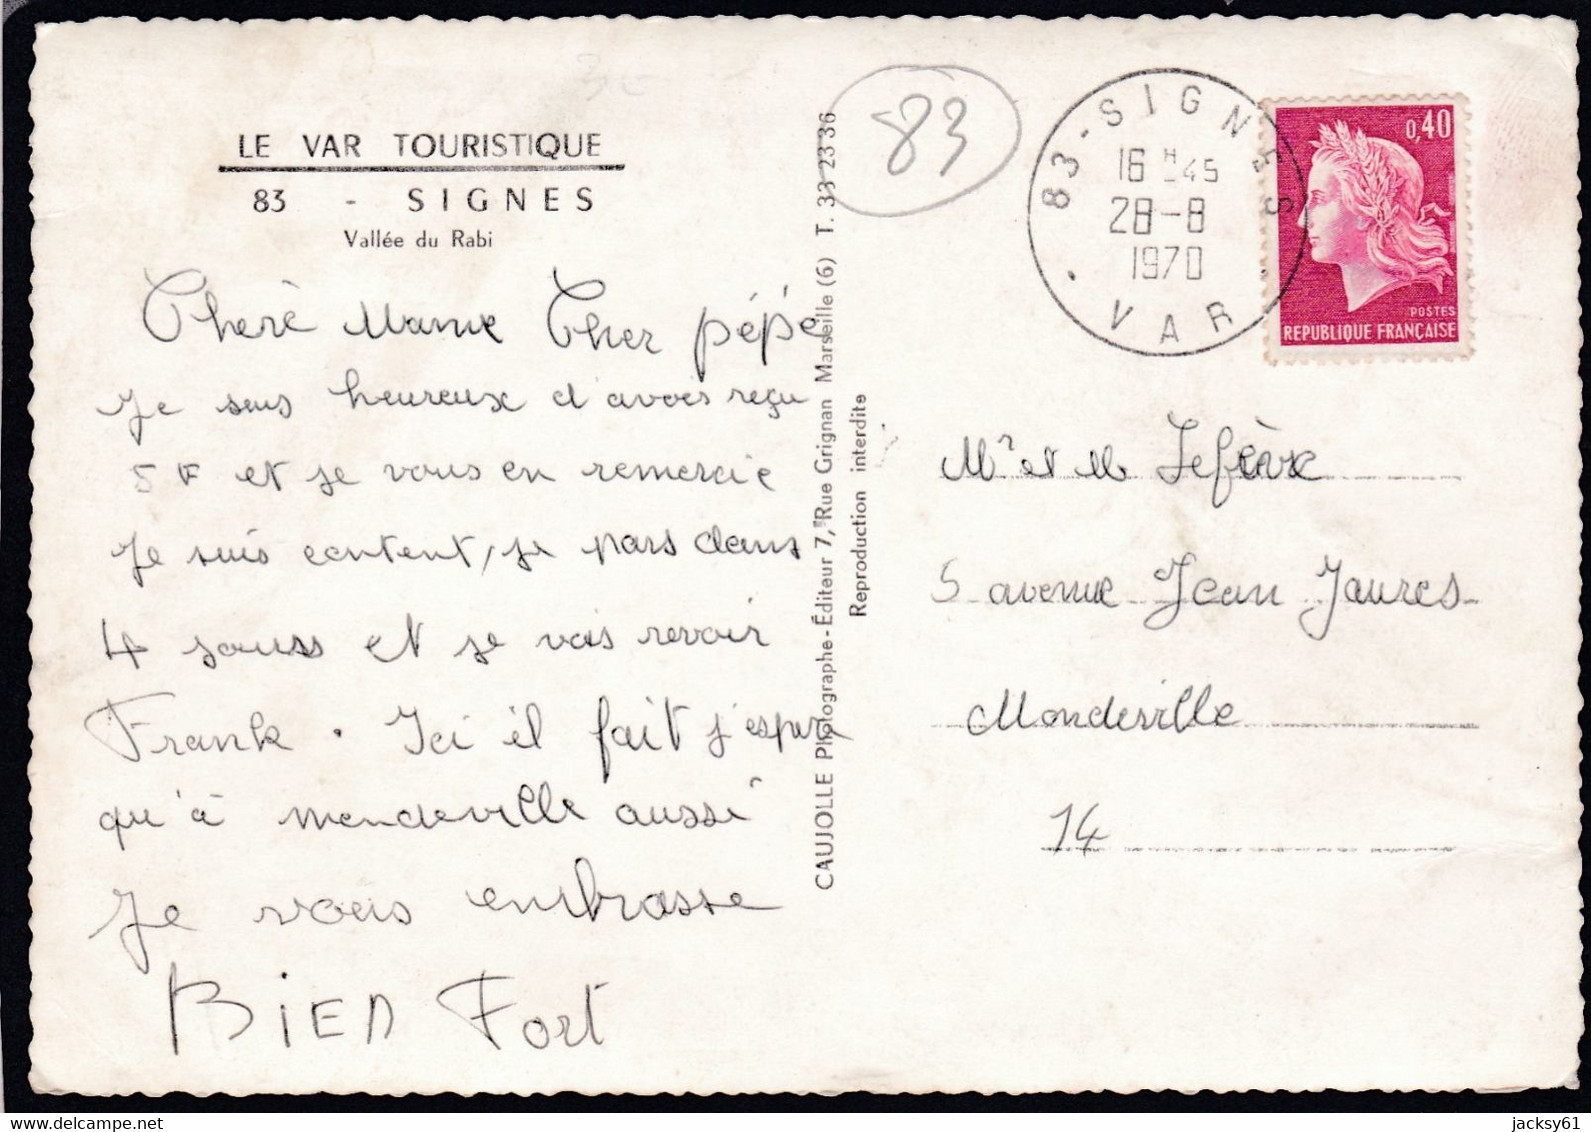 LE VAR TOURISTIQUE
83 - SIGNES
Vallée du Rabi
Cherè Mame Cher pépé
Je suis heureux d'avoir reçu
5 F et je vous en remercie
Je suis content, je pars dans
4 jours et je vais revoir
Frank. Ici il fait j'esper
qu'à mondeville aussi
Je vous embrasse
BiEn Fort
CAUJOLLE Photographe-Éditeur 7, Rue Grignan Marseille (6) T. 33 23 36
Reproduction interdite
83
83 - SIGNES
16 H 45
28-8
1970
VAR
0,40
POSTES
REPUBLIQUE FRANÇAISE
Mr et M Lefèvre
5 avenue Jean Jaures
Mondeville
14
www.delcampe.net
jacksy61